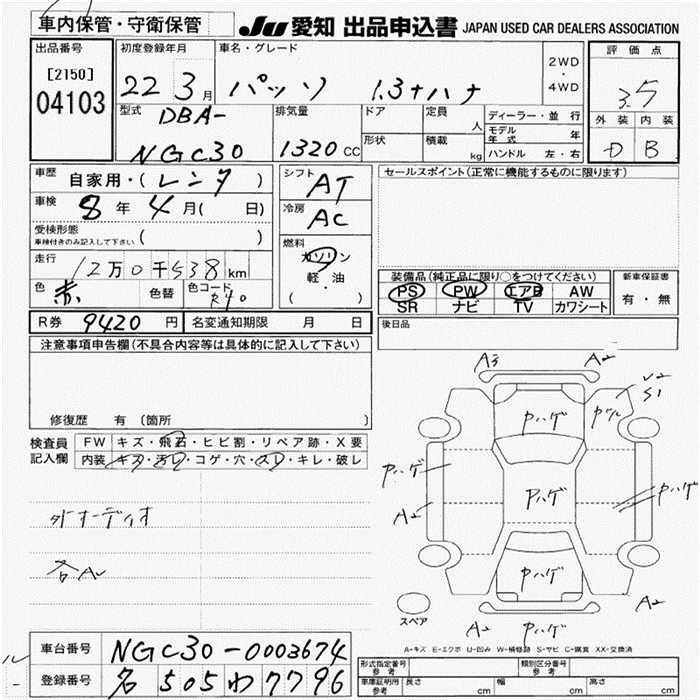 車内保管・守衛保管
JU 愛知 出品申込書 JAPAN USED CAR DEALERS ASSOCIATION
出品番号
[2150]
04103
初度登録年月
22 3月
車名・グレード
パッソ 1.3+ハナ
2WD
・
4WD
評価点
3.5
外装 内装
D B
型式
DBA-
NGC30
排気量
1320 CC
ドア
形状
定員
人
積載
kg
ディーラー・並行
モデル年式 年
ハンドル 左・右
車歴
自家用・(レンタ)
車検
8年 4月( 日)
受検形態
車検付きのみ記入して下さい ( )
走行
12万0千538km
色
赤
色替
色コード
R40
シフト
AT
冷房
AC
燃料
ガソリン
軽・油
( ・ )
セールスポイント(正常に機能するものに限ります)
装備品(純正品に限り○をつけてください)
PS PW エアB AW
SR ナビ TV カワシート
新車保証書
有・無
R券 9420円 名変通知期限 月 日
後日品
注意事項申告欄(不具合内容等は具体的に記入して下さい)
修復歴 有 (箇所 )
検査員
記入欄
FW キズ・飛石・ヒビ割・リペア跡・X要
内装 キズ・汚レ・コゲ・穴・スレ・キレ・破レ
外オーディオ
各AU
A3 A2
U2
S1
Pハゲ
Pハゲ
Pハゲ
Pハゲ
A2
Pハゲ
A2
スペア
A2 Pハゲ
A-キズ E-エクボ U-凹み W-補修跡 S-サビ C-腐食 XX-交換済
ルー
車台番号 NGC30-0003674
登録番号 名 505 わ 7796
形式指定番号
参考
類別区分番号
参考
車庫証明用
参考
長さ cm 幅 cm 高さ cm